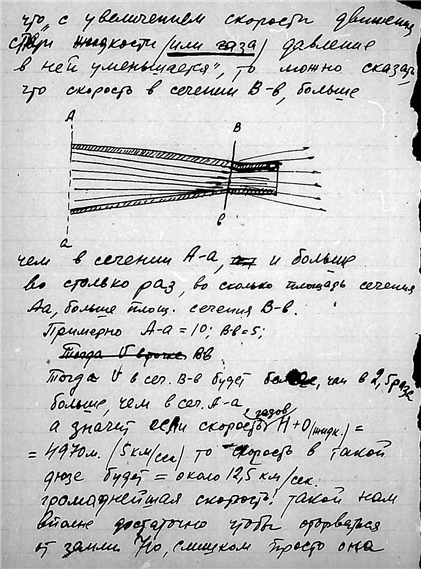 что „с увеличением скорости движения
струи жидкости (или газа) давление
в ней уменьшается", то можно сказать,
что скорость в сечении В-в, больше
А
В
а
в
чем в сечении А-а, и больше
во столько раз, во сколько площадь сечения
Аа, больше площ. сечения В-в.
Примерно А-а = 10; В-в = 5;
Тогда V в
Вв
Тогда V в сеч. В-в будет более, чем в 2,5 раза
больше, чем в сеч. А-а
а значит если скорость газов H+O (жидк.) =
= 4970м. (5км/сек) то скорость в такой
дюзе будет = около 12,5 км/сек.
громаднейшая скорость! такой нам
вполне достаточно чтобы оторваться
от земли. Но, слишком просто она